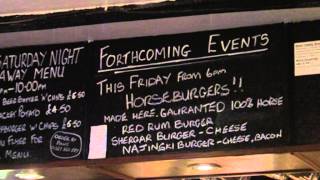 SATURDAY NIGHT
AWAY MENU
10:00PM
BEEF BURGER W/CHIPS £6.50
JACKET POTATO £4.50
W/ CHIPS £4.50
MENU.
FORTHCOMING EVENTS
THIS FRIDAY FROM 6PM
HORSEBURGERS!!
MADE HERE. GAURANTED 100% HORSE
RED RUM BURGER
SHERGAR BURGER - CHEESE
NAJINSKI BURGER - CHEESE, BACON